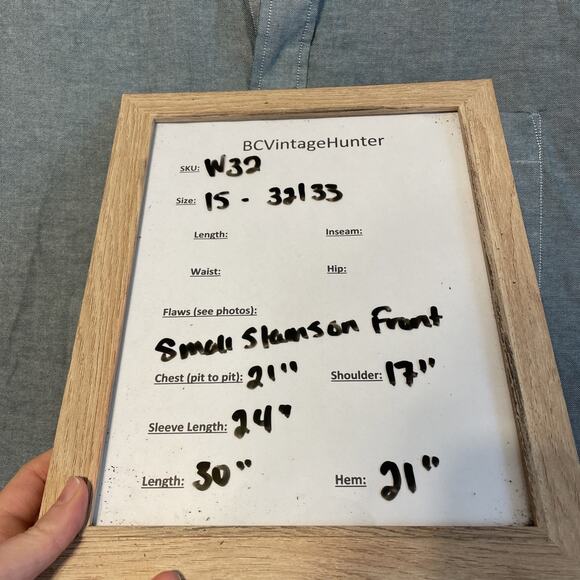 BCVintageHunter
SKU: W32
Size: 15 - 32/33
Length: Inseam:
Waist: Hip:
Flaws (see photos):
Small Stains on Front
Chest (pit to pit): 21" Shoulder: 17"
Sleeve Length: 24"
Length: 30" Hem: 21"